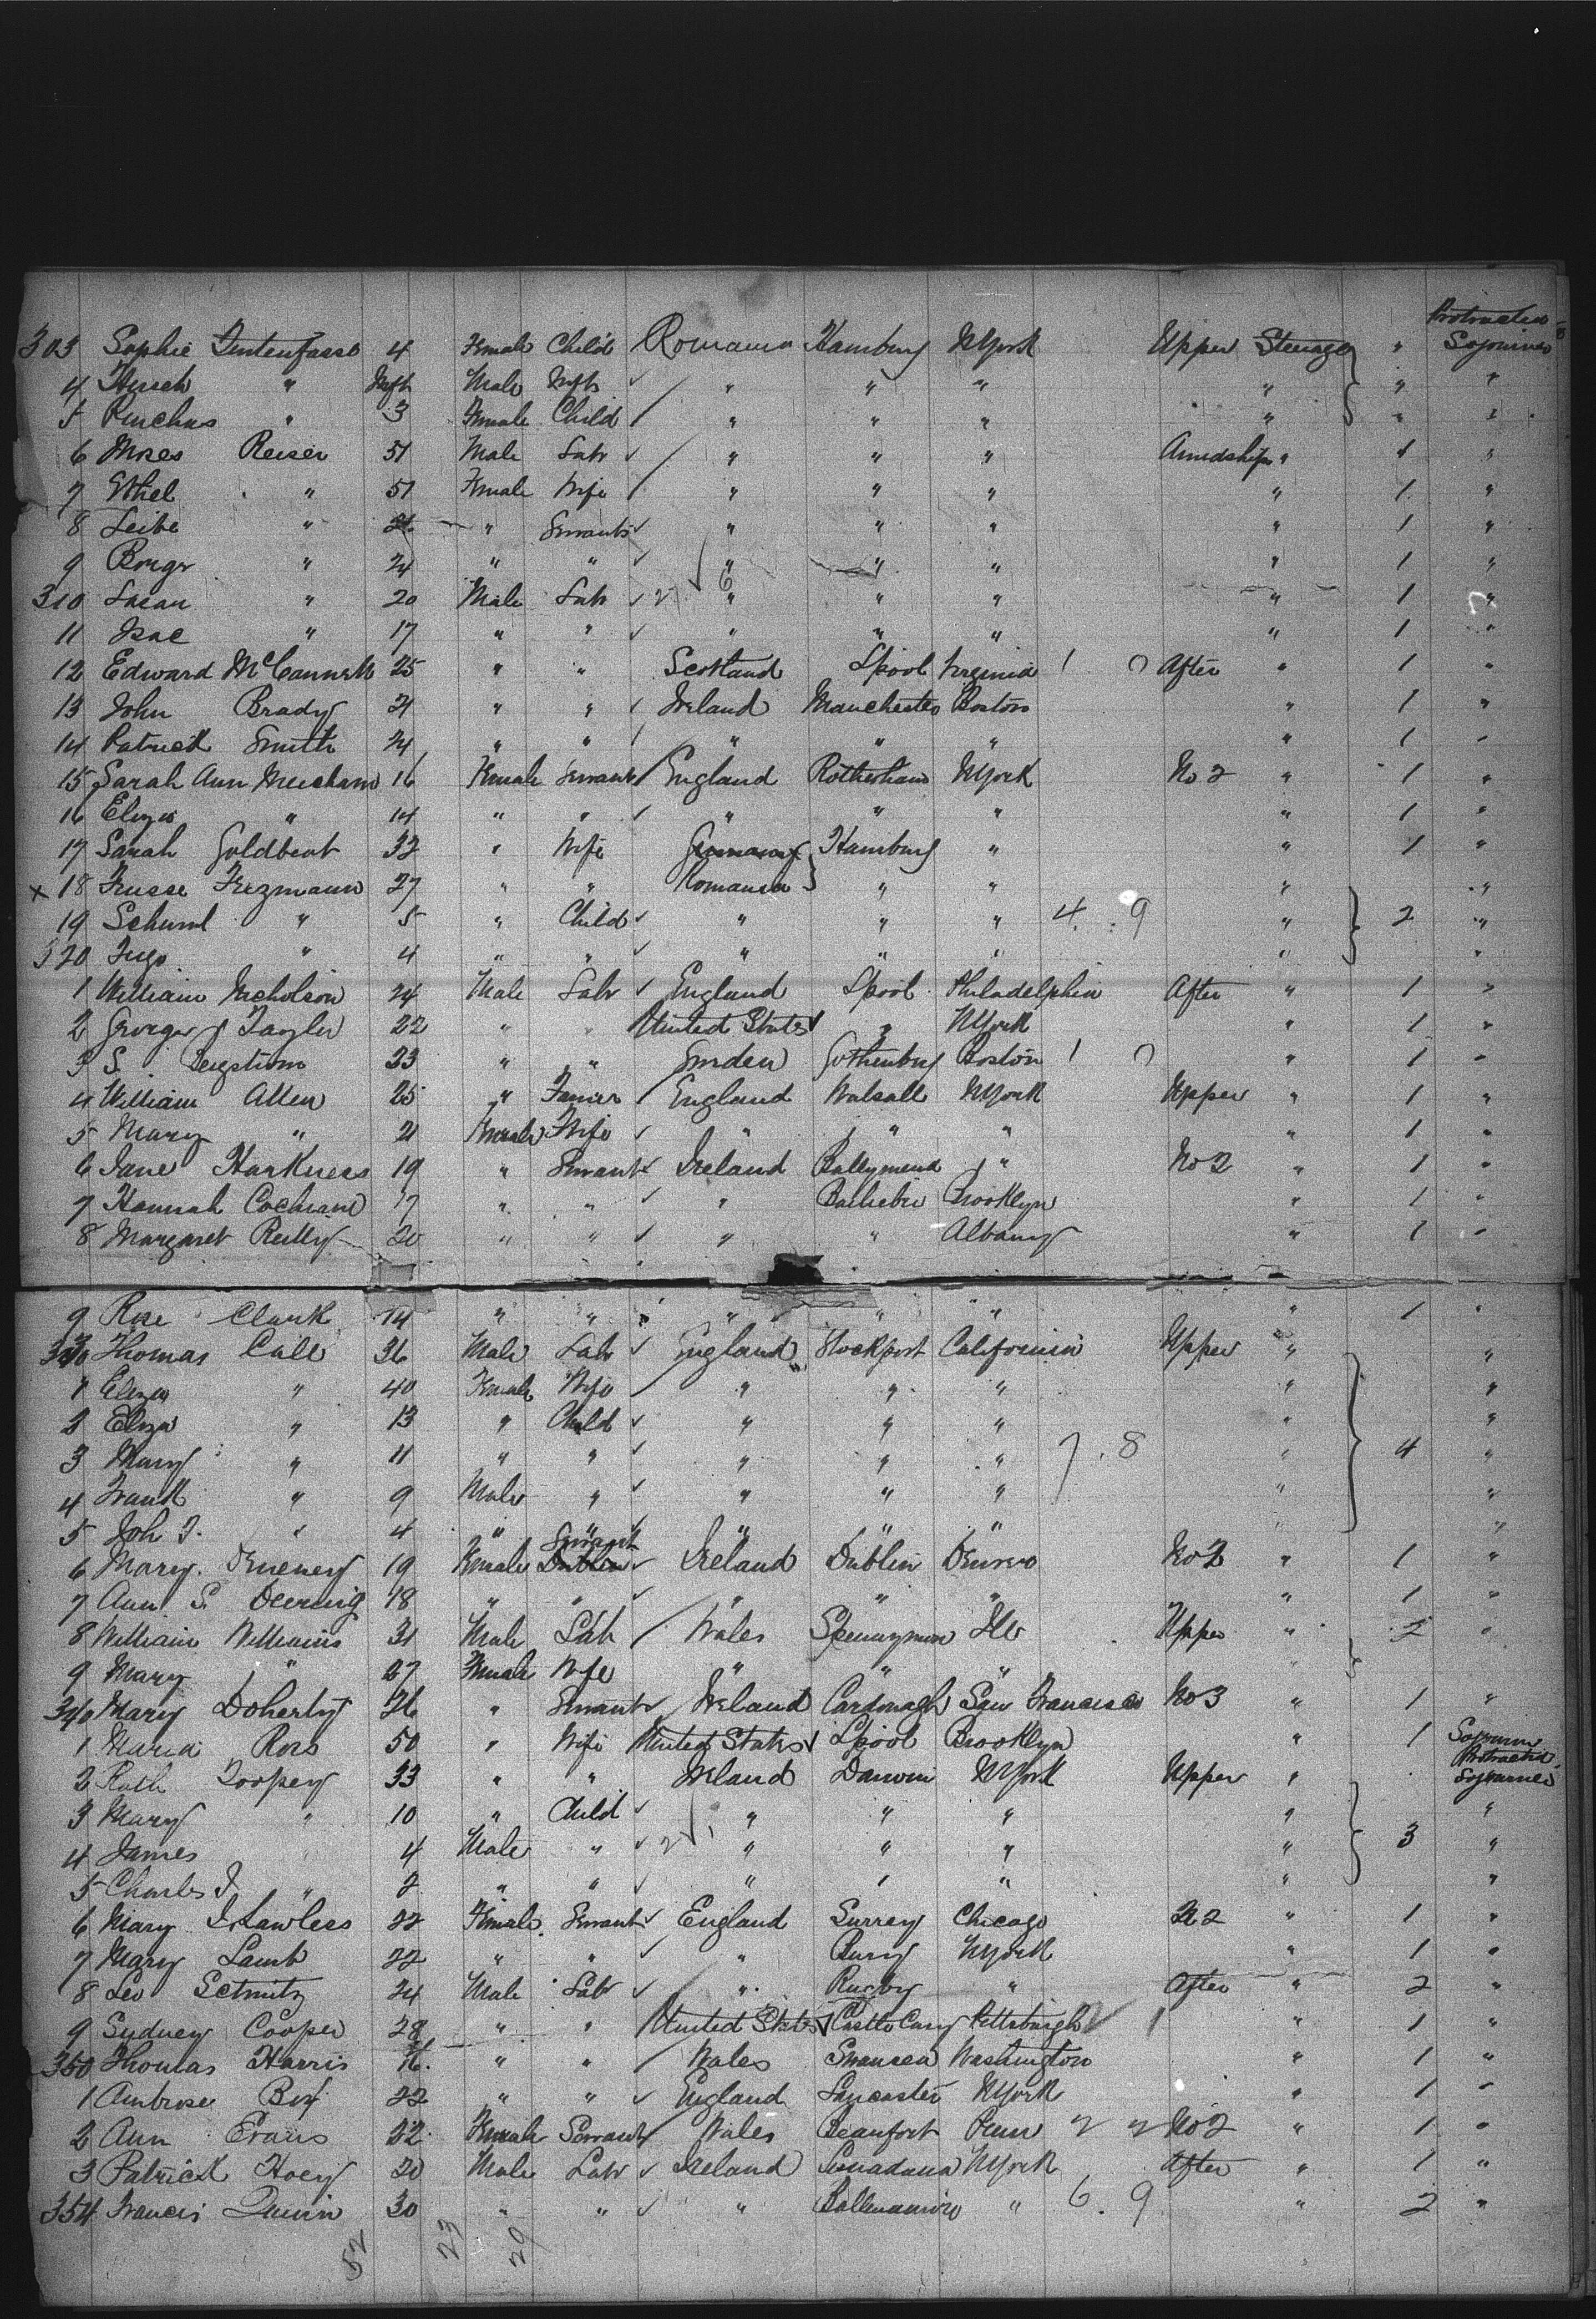 Protracted
303 Sophie Tintenfass 4 Female Child Romania Hamburg NYork Upper Steerage " Sojourner
4 Hersch " Inft Male Inft " " " " " "
5 Pinchas " 3 Female Child " " " " " "
6 Moses Reiser 51 Male Labr " " " Amidships " 1 "
7 Ethel " 51 Female Wife " " " " 1 "
8 Leibe " 21 " Servant " " " " 1 "
9 " 24 " " " " " " 1 "
310 " 20 Male Labr 2 6 " " " " 1 "
11 Isac " 17 " " " " " " 1 "
12 Edward 25 " " Scotland Lpool Virginia 1 After " 1 "
13 John Brady 21 " " Ireland Manchester Boston " 1 "
14 Patrick Smith 24 " " " " " " 1 "
15 Sarah Ann 16 Female Servant England Rotherham NYork No 2 " 1 "
16 Eliza " 14 " " " " " " 1 "
17 Sarah Goldbeat 32 " Wife Germany Hamburg " " 1 "
x 18 27 " " Romania " " " "
19 " 5 " Child " " " 4 . 9 " 2 "
320 " 4 " " " " " " "
1 William Nicholson 24 Male Labr England Lpool Philadelphia After " 1 "
2 George Taylor 22 " " United States " NYork " 1 "
3 S. Bergstrom 23 " " Sweden Gothenburg Boston 1 " 1 "
4 William Allen 25 " Farmer England Walsall NYork Upper " 1 "
5 Mary " 21 Female Wife " " " " 1 "
6 Jane Harkness 19 " Servant Ireland Ballymena " No 2 " 1 "
7 Hannah Cochrane 17 " " " Brooklyn " 1 "
8 Margaret Reilly 20 " " " " Albany " 1 "
9 Rose Clark 14 " " " " " " 1 "
330 Thomas Cale 36 Male Labr England Stockport California Upper " "
1 Eliza " 40 Female Wife " " " " "
2 Eliza " 13 " Child " " " " "
3 Mary " 11 " " " " " 7 . 8 " 4 "
4 Frank " 9 Male " " " " " "
5 Joh T. " 4 " " " " " "
Servant
6 Mary 19 Female Dublin Ireland Dublin Denver No 2 " 1 "
7 Ann S. Deering 18 " " " " " " 1 "
8 William Williams 31 Male Lab Wales Upper " 2 "
9 Mary " 27 Female Wife " " " "
340 Mary Doherty 26 " Servant Ireland Cardonagh San Francisco No 3 " 1 "
1 Maria Ross 50 " Wife United States Lpool Brooklyn " 1 Sojourner
Protracted
2 Kath 33 " " Ireland NYork Upper " Sojourner
3 Mary " 10 " Child " " " " "
4 James " 4 Male " 2 1 " " " " 3 "
5 Charles J. " 2 " " " " " " "
6 Mary J. Lawless 22 Female Servant England Surrey Chicago No 2 " 1 "
7 Mary Lamb 22 " " " Bury NYork " 1 "
8 Leo Schmitz 24 Male Labr " Rugby " After " 2 "
9 Sydney Cooper 28 " " United States Castle Cary Pittsburgh 1 " 1 "
350 Thomas Harris 16 " " Wales Swansea Washington " 1 "
1 Ambrose Box 22 " " England Lancaster NYork " 1 "
2 Ann Evans 22 Female Servant Wales Beaufort Penn No 2 " 1 "
3 Patrick Hoey 20 Male Labr Ireland NYork After " 1 "
354 Francis Quinn 30 " " " " 6 . 9 " 2 "
52 23 29